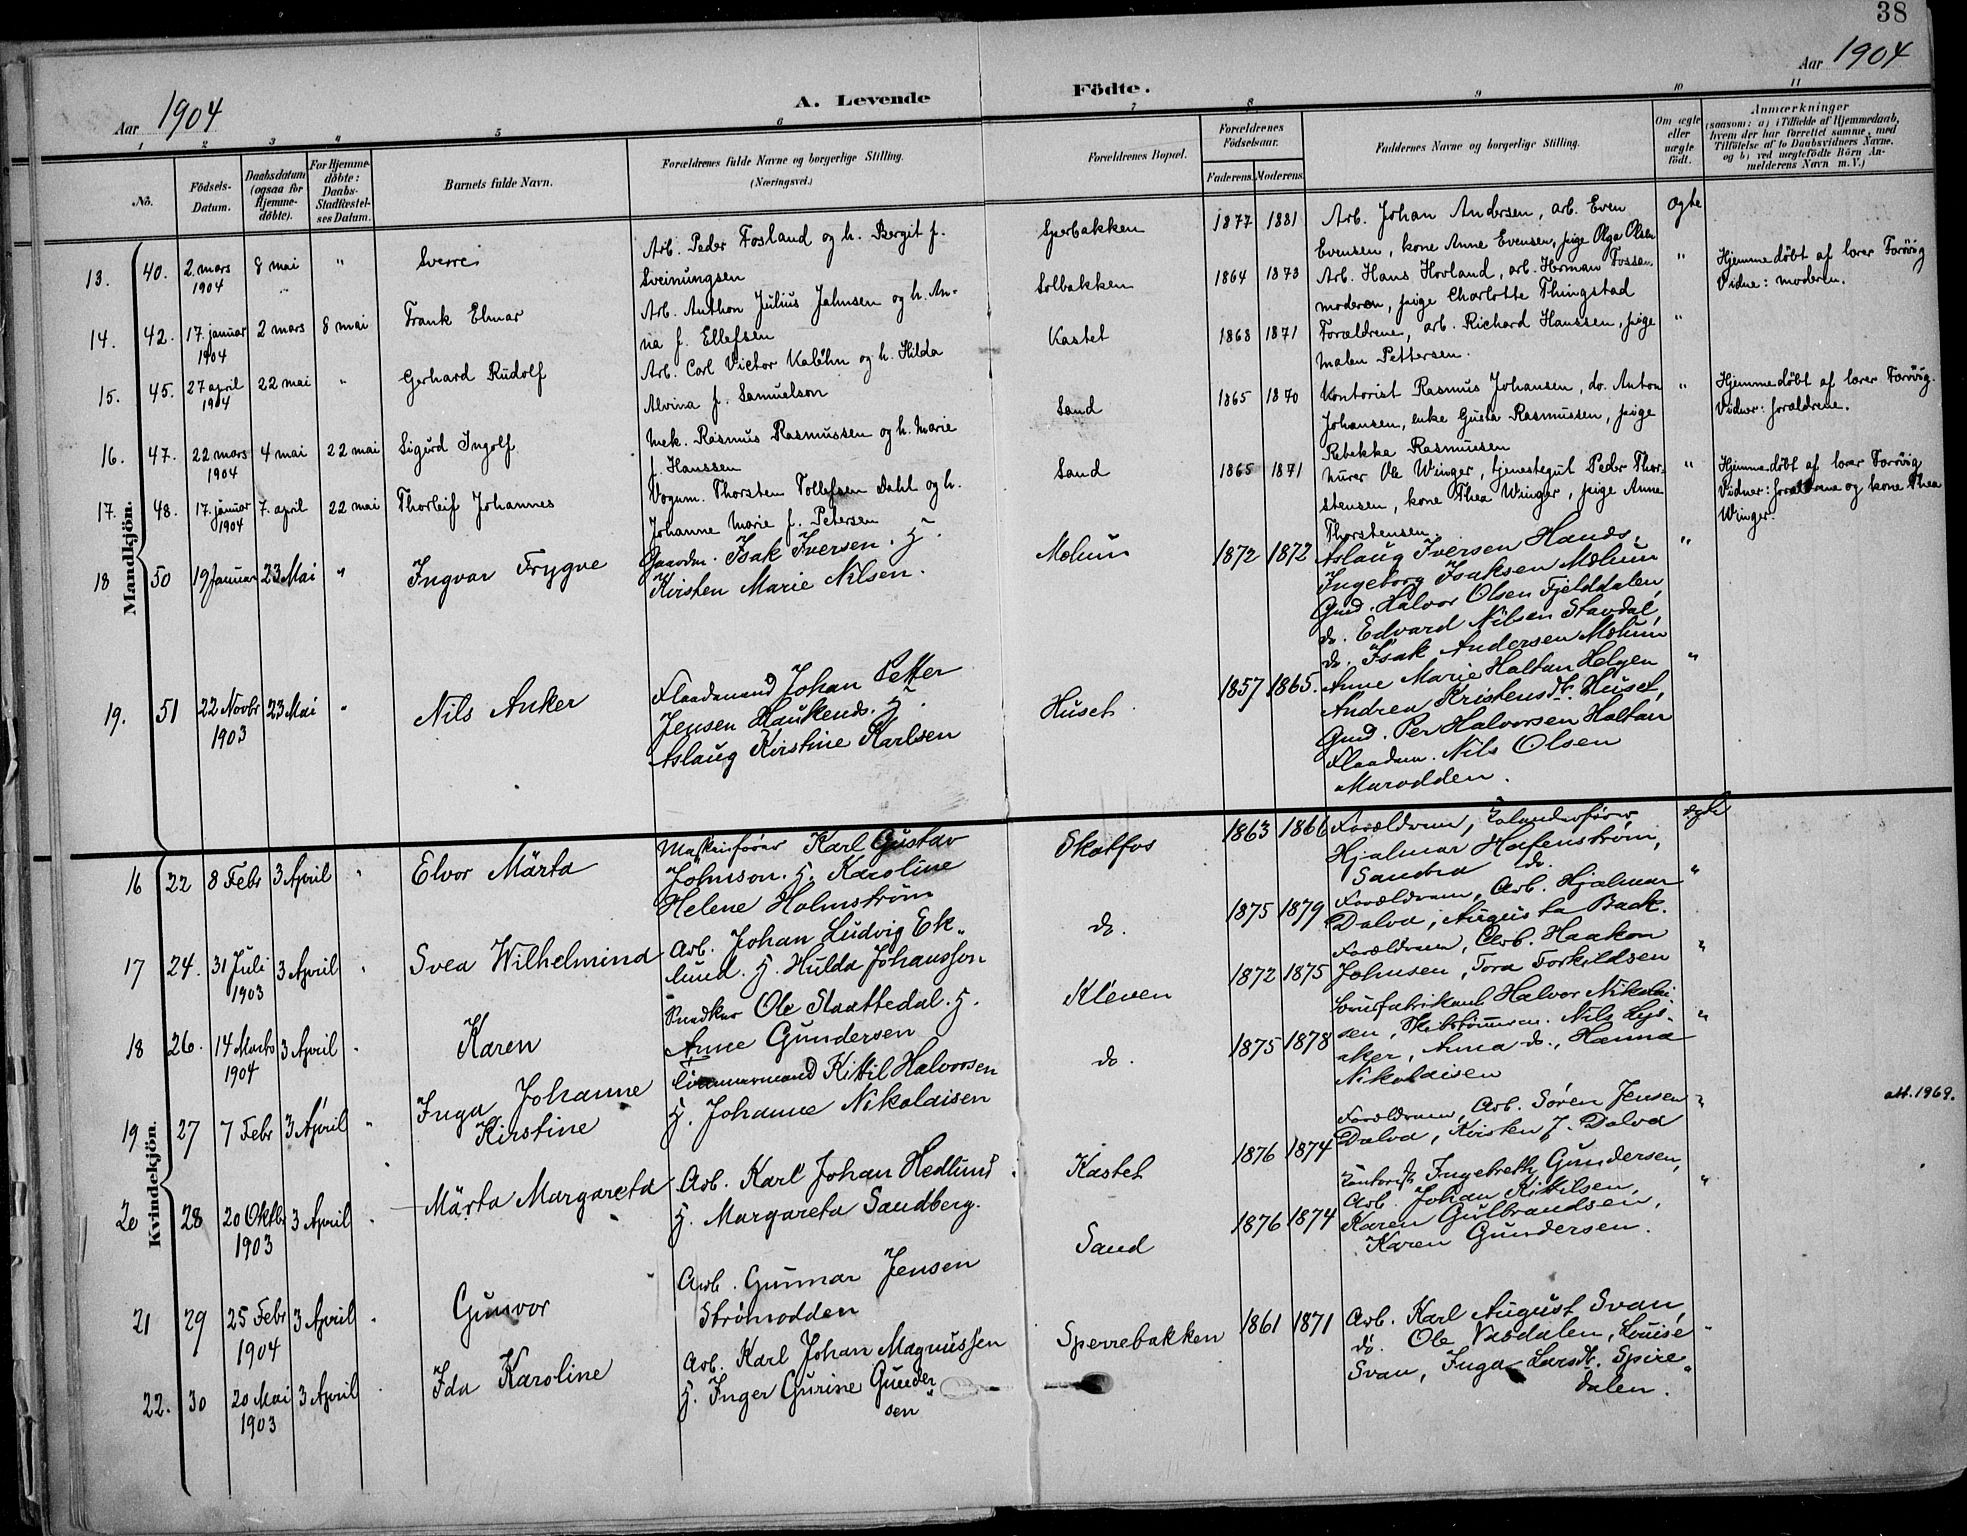 38
Aar 1904
Aar 1904
A. Levende Födte.
1 2 3 4 5 6 7 8 9 10 11
No.
Födsels-Datum.
Daabsdatum (ogsaa for Hjemmedöbte).
For Hjemmedöbte: Daabs-Stadfæstelses Datum.
Barnets fulde Navn.
Forældrenes fulde Navne og borgerlige Stilling. (Næringsvei.)
Forældrenes Bopæl.
Forældrenes Födselsaar.
Faderens. Moderens.
Faddernes Navne og borgerlige Stilling.
Om ægte eller uægte födt.
Anmærkninger
(saasom: a) i Tilfælde af Hjemmedaab,
hvem der har forrettet samme, med
Tilföielse af to Daabsvidners Navne.
og b) ved uægtefödte Börn An-
melderens Navn m. V.)
Mandkjön.
13. 40. 2 mars 1904 8 mai " Sverre
Arb. Peder Fosland og h. Bergit f.
Sveinungsen
Sperbakken 1877 1881
Arb. Johan Andersen, arb. Even
Evensen, kone Anne Evensen, pige Olga Olsen
ægte
14. 42. 17 januar 1904 2 mars 8 mai Frank Elmar
Arb. Anthon Julius Jahnsen og h. An-
na f. Ellefsen
Solbakken 1864 1873
Arb. Hans Hovland, arb. Herman Fossan,
moderen, pige Charlotte Thingstad
"
Hjemmedöbt af lærer Farövig
Vidne: moderen.
15. 45. 27 april 1904 22 mai " Gerhard Rudolf
Arb. Carl Victor Kaböhn og h. Hilda
Alvina f. Samuelson
Kastet 1868 1871
Forældrene, arb. Richard Hanssen, pige
Malen Pettersen.
"
16. 47. 22 mars 1904 4 mai 22 mai Sigurd Ingolf
Mek. Rasmus Rasmussen og h. Marie
f. Hanssen
Sand 1865 1870
Kontorist Rasmus Johansen, do. Anton
Johansen, enke Gusta Rasmussen, pige
Rebekke Rasmussen
"
Hjemmedöbt af lærer Farövig.
Vidner: forældrene.
17. 48. 17. januar 1904 7. april 22 mai Thorleif Johannes
Vognm. Thorsten Tollefsen Dahl og h.
Johanne Marie f. Petersen
Sand 1865 1871
Murer Ole Winger, tjenestegut Peder Thor-
stensen, kone Thea Winger, pige Anne
Thorstensen
"
Hjemmedöbt af lærer Farövig
Vidner: forældrene og kone Thea
Winger.
18 50 19 Januar 23 Mai " Ingvar Trygve
Gaardm. Isak Iversen. H.
Kirsten Marie Nilsen.
Mælum 1872 1872
Aslaug Iversen Hands,
Ingeborg Isaksen Mælum
Gmd. Halvor Olsen Fjelddalen,
do. Edvard Nilsen Stavdal,
do. Isak Andersen Mælum
"
19. 51 22 Novbr 1903 23 Mai " Nils Anker
Flaadmand Johan Petter
Jensen Haukenæs. H.
Aslaug Kirstine Karlsen
Huset 1857 1865.
Anne Marie Haltan Helgen
Andrea Kristensdt. Huset,
Gmd. Per Halvorsen Haltan
Flaadm. Nils Olsen
Marodden.
"
Kvindekjön.
16 22 8 Febr 3 April " Elvor Märta
Maskinfører Karl Gustav
Johnson. H. Karoline
Helene Holmstrøm
Skotfos 1863 1866
Forældrene,
Hjalmar Hafenstrøm,
Sandra do.
ægte
17 24. 31 Juli 1903 3 April " Svea Wilhelmina
Arb. Johan Ludvig Ek-
lund. H. Hulda Johansson
do. 1875 1879
Forældrene, Arb. Hjalmar
Dalva, Augusta Back.
"
18 26. 14 Marts 1904 3 April " Karen
Snedker Ole Slaattedal. H.
Anne Gundersen
Kleven 1872 1875
Forældrene, Arb. Haakon
Johnsen, Tora Torkildsen
"
19 27 7 Febr 3 April " Inga Johanne Kirstine
Tømmermand Kittil Halvorsen
H. Johanne Nikolaisen
do. 1875 1878
Halvor Nikolai-
sen, Nils Lys-
aker, Anna do., Hanna
Nikolaisen
"
att. 1969.
20 28 20 Oktbr 1903 3 April " Märta Margareta
Arb. Karl Johan Hedlund
H. Margareta Sandberg.
Kastet 1876 1874
Forældrene, Arb. Søren Jensen
Dalva, Kirsten J. Dalva
"
21 29 25 Febr 1904 3 April " Gunvor
Arb. Gunnar Jensen
Strømodden
Sand 1876 1874
Kontorist Ingebreth Gundersen,
Arb. Johan Kittilsen,
Karen Gulbrandsen,
Karen Gundersen.
"
22. 30 20 Mai 1903 3 April Ida Karoline
Arb. Karl Johan Magnussen
H. Inger Gurine Gunder-
sen
Sperrebakken 1861 1871
Arb. Karl August Svan,
do. Ole Vasdalen, Louise
Svan, Inga Larsdt. Spire-
dalen.
"